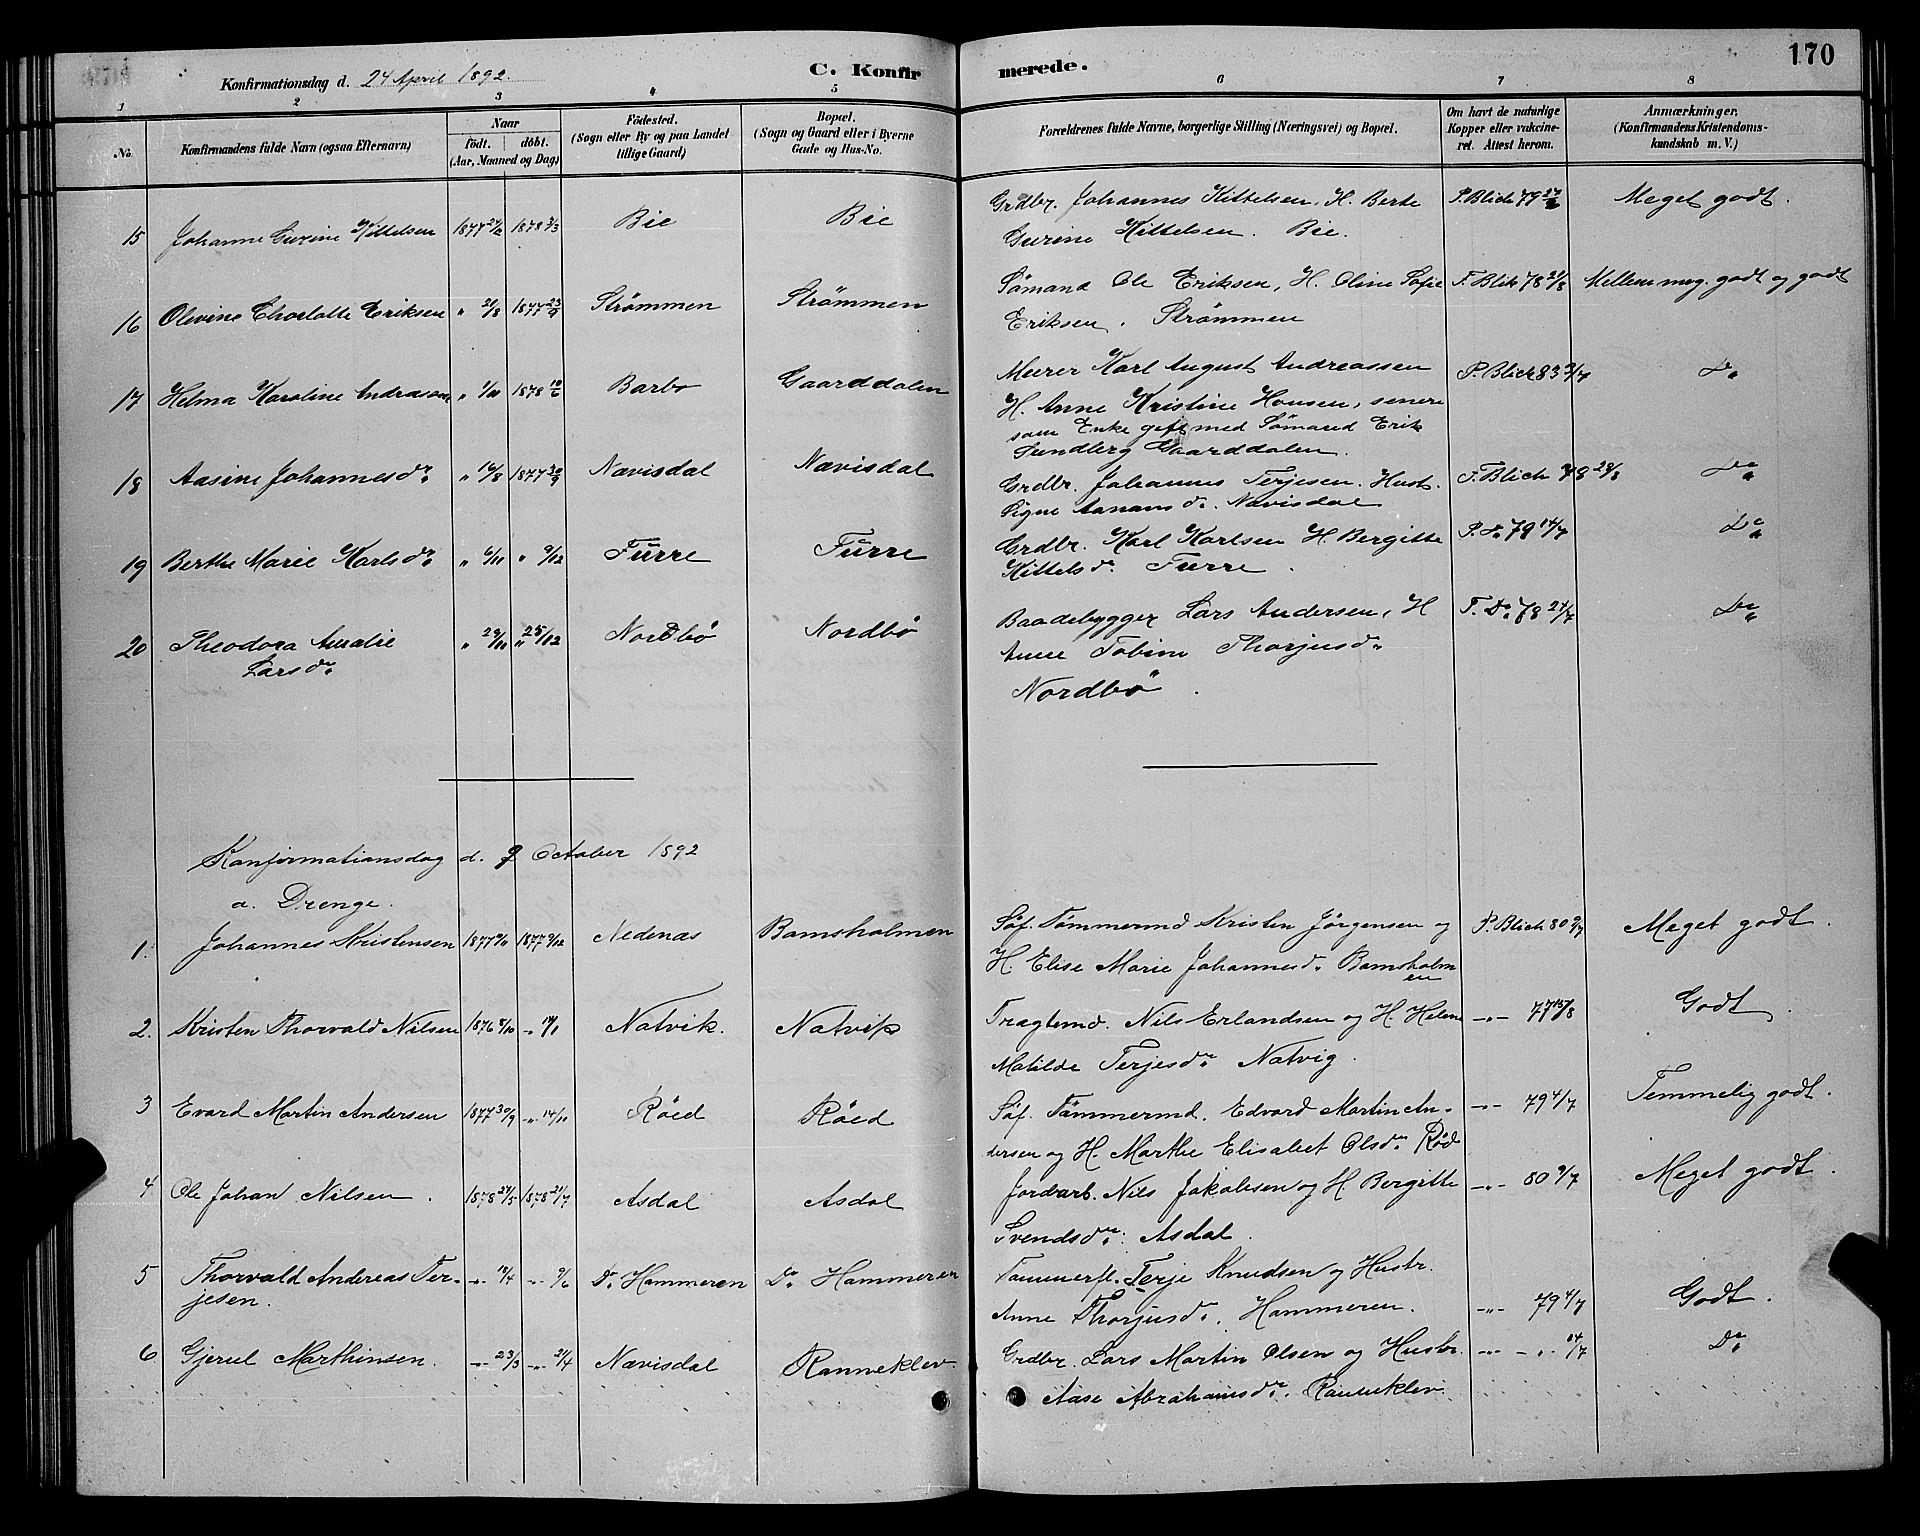 170
C. Konfirmerede.
Konfirmationsdag d. 24 April 1892.
1 2 3 4 5 6 7 8
No.
Konfirmandens fulde Navn (ogsaa Efternavn)
Naar
födt. döbt.
(Aar, Maaned og Dag)
Födested.
(Sogn eller By og paa Landet
tillige Gaard)
Bopæl.
(Sogn og Gaard eller i Byerne
Gade og Hus-No.
Forældrenes fulde Navne, borgerlige Stilling (Næringsvei) og Bopæl.
Om havt de naturlige
Kopper eller vakcine-
ret. Attest herom.
Anmærkninger,
(Konfirmandens Kristendoms-
kundskab m. V.)
15 Johanne Gurine Kittelsen 1877 1878 3/3 Bie Bie Grdbr. Johannes Kittelsen, H. Berte P. Blich 79 Meget godt.
Gurine Kittelsen. Bie.
16 Olevine Charlotte Eriksen " 21/8 1877 23/9 Strømmen Strømmen Sømand Ole Eriksen, H. Oline Sofie F. Blich 78 21/8 Mellem meg. godt og godt
Eriksen. Strømmen
17 Helma Karoline Andreassen " 1/11 1878 10/6 Barbo Gaarddalen Murer Karl August Andreassen P. Blich 83 3/7 Do
H. Anne Kristine Hansen, senere
som Enke gift med Sømand Erik
Sundberg Gaarddalen.
18 Aasine Johannesdr " 16/8 1877 30/9 Nævisdal Nævisdal Grdbr. Johannes Terjesen. Hust. F. Blich 78 28/8 Do
Signe Aanansdr. Nævisdal
19 Berthe Marie Karlsdr " 6/11 " 9/12 Furre Furre Grdbr. Karl Karlsen H. Bergitte P. Do 79 14/7 Do
Kittelsdr. Furre.
20 Theodora Amalie " 29/11 " 25/12 Nordbø Nordbø Baadebygger Lars Andersen, H F. Do 78 24/7 Do
Larsdr
Anne Tobine Thorjusdr
Nordbø.
Konfirmationsdag d. 9 October 1892
a. Drenge.
1. Johannes Kristensen 1877 9/11 1877 9/12 Nedenæs Bamsholmen Søf. Tømmermd Kristen Jørgensen og P. Blich 80 9/7 Meget godt.
H. Elise Marie Johannesdr Bamsholm
en
2. Kristen Thorvald Nilsen 1876 8/10 -"- 14/1 Natvik. Natvik Fragtemd. Nils Erlandsen og H. Helene -"- 77 15/8 Godt
Matilde Terjesdr Natvig.
3 Evard Martin Andersen 1877 30/9 -"- 14/10 Røed Røed Søf. Tømmermd. Edvard Martin An- -"- 79 4/7 Temmelig godt.
dersen og H. Marthe Elisabet Olsdr Rød
4 Ole Johan Nilsen. 1878 24/5 1878 21/7 Asdal Asdal Jordarb. Nils Jakobsen og H Bergitte -"- 80 9/7 Meget godt.
Svendsdr. Asdal.
5 Thorvald Andreas Ter- -"- 18/4 -"- 9/6 Do Hammeren Do Hammeren Tømmerfl. Terje Knudsen og Hustr.
jesen. Anne Thorjusdr. Hammeren. -"- 79 4/7 Godt.
6 Gjerul Marthinsen. -"- 23/3 -"- 21/4 Nævisdal Ranneklev. Grdbr. Lars Martin Olsen og Hustr. -"- -"- 14/7 Do
Aase Abrahamsdr. Ranneklev